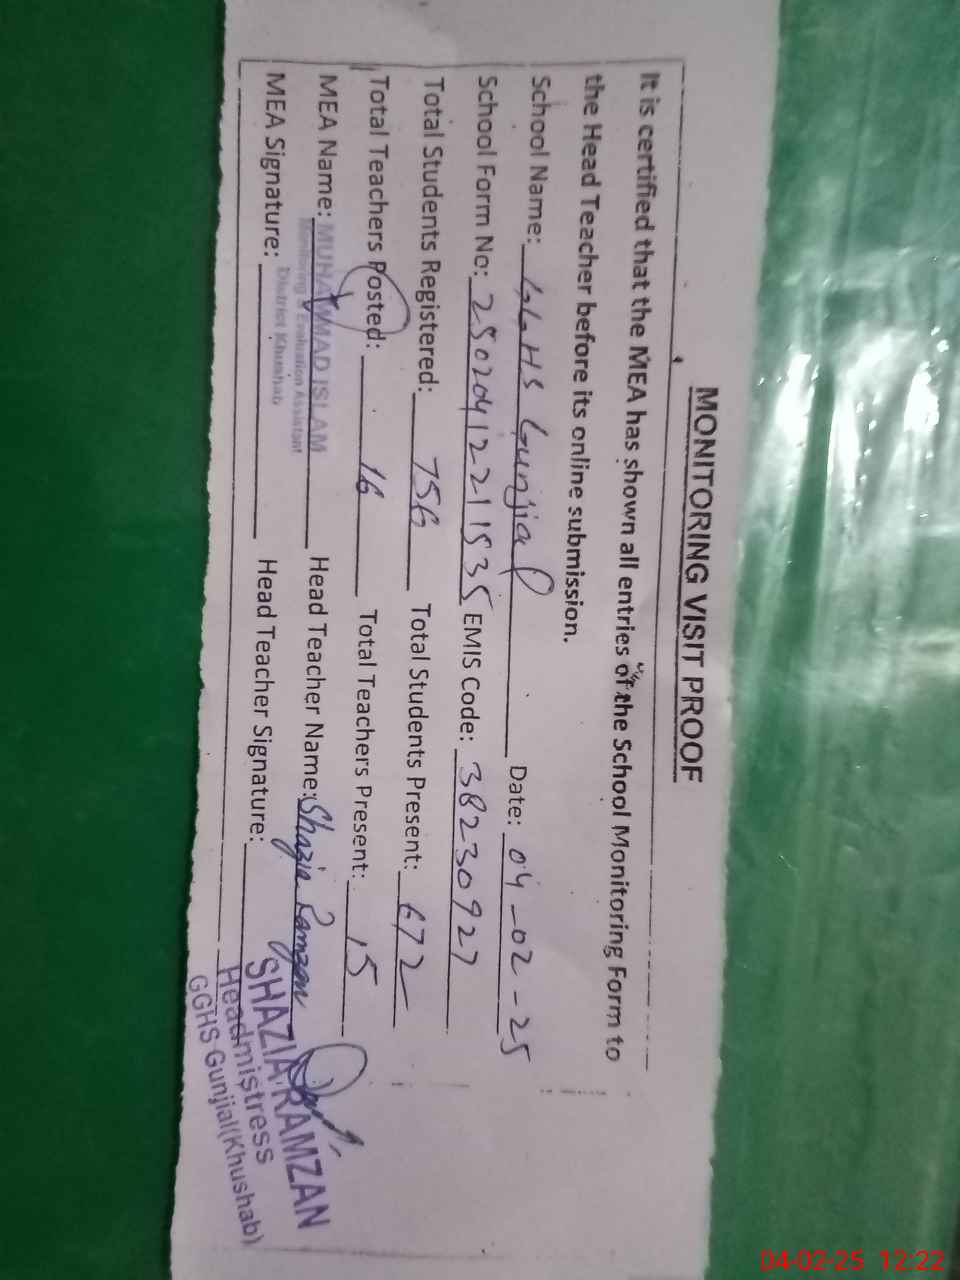 MONITORING VISIT PROOF
It is certified that the MEA has shown all entries of the School Monitoring Form to
the Head Teacher before its online submission.
School Name: GGHS Gunjial Date: 04-02-25
School Form No: 25020412211535 EMIS Code: 38230927
Total Students Registered: 756 Total Students Present: 672
Total Teachers Posted: 16 Total Teachers Present: 15
MEA Name: MUHAMMAD ISLAM Head Teacher Name: Shazia Ramzan
Monitoring & Evaluation Assistant
District Khushab
MEA Signature: Head Teacher Signature:
SHAZIA RAMZAN
Headmistress
GGHS Gunjial(Khushab)
04-02-25 12:22